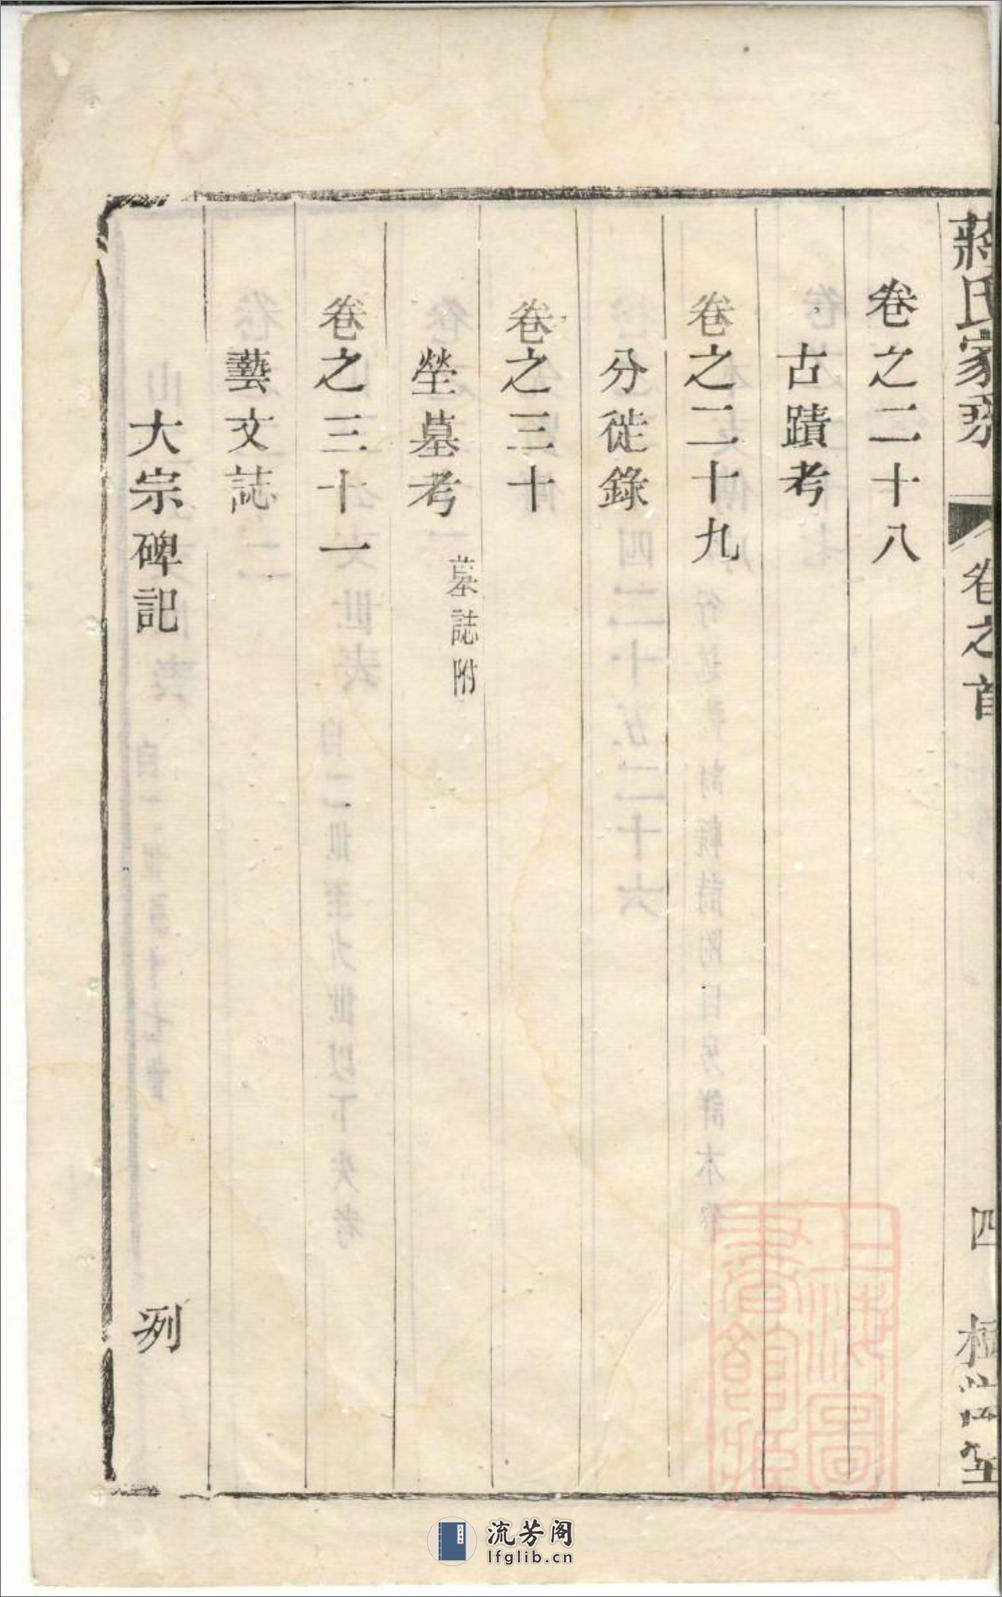 蔣氏家乘 卷之首 四
卷之二十八
古蹟考
卷之二十九
分徙錄
卷之三十
塋墓考 墓誌附
卷之三十一
藝文誌
大宗碑記 列
上海圖書館藏
流芳阁
lfglib.cn